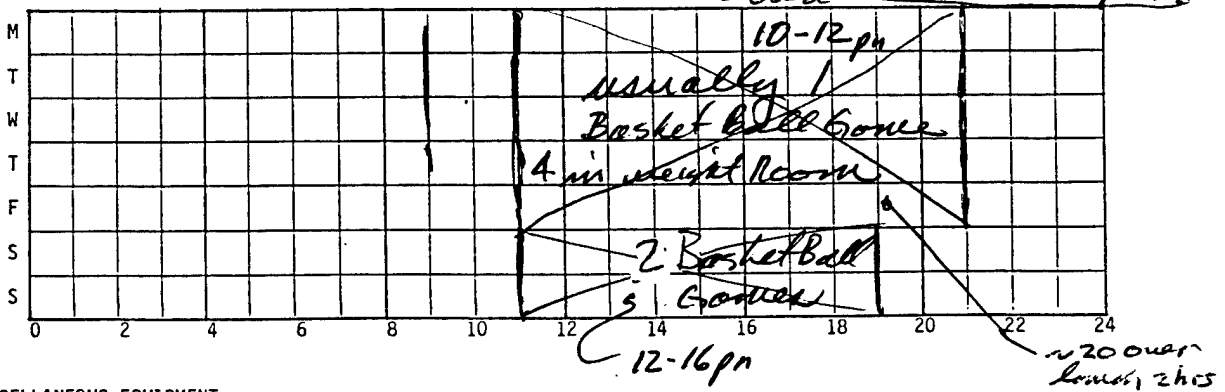 M
T
W
T
F
S
S
10-12 pn
usually 1
Basket Ball Game
4 in weight Room
2 Basket Ball
Games
0 2 4 6 8 10 12 14 16 18 20 22 24
12-16 pn
~20 over
2 hrs
CELLANEOUS EQUIPMENT